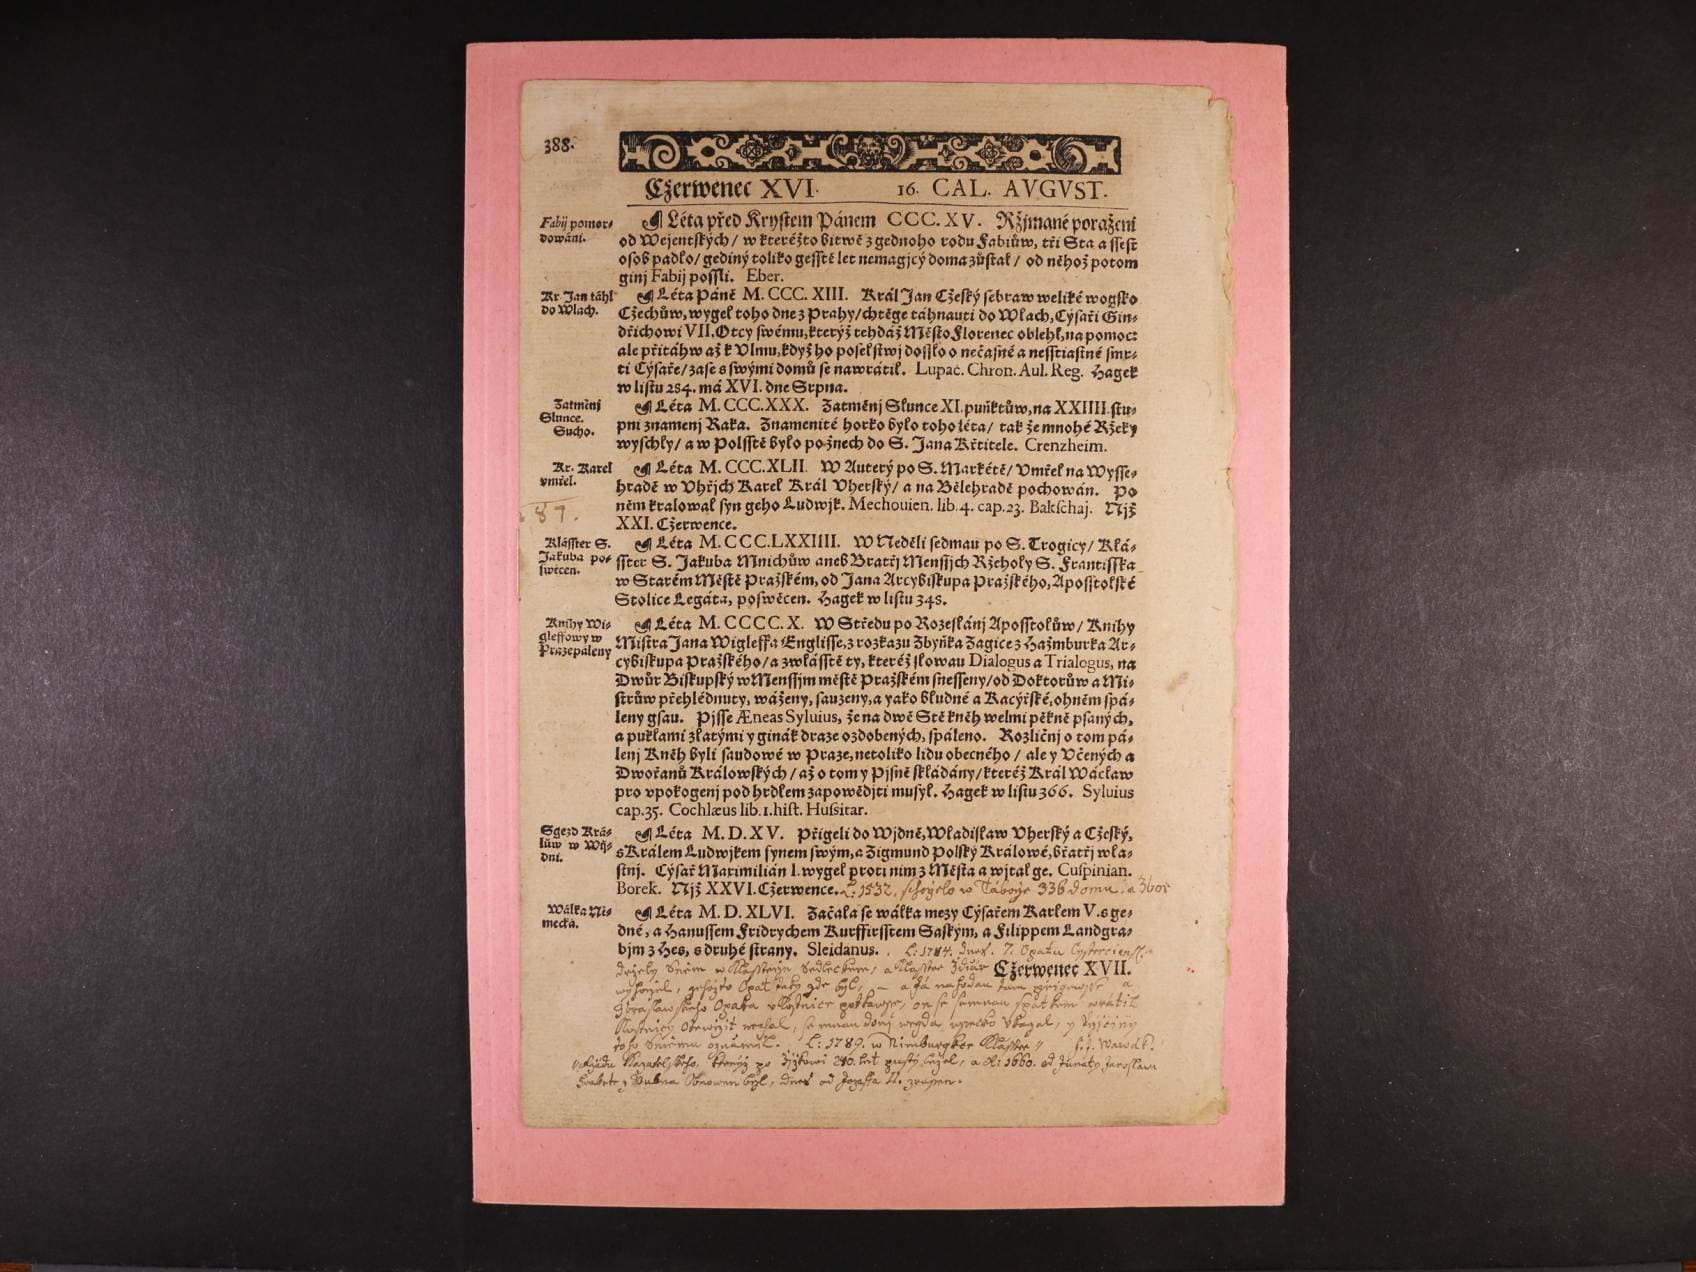 388.
Cžerwenec XVI. 16. CAL. AVGVST.
Fabij pomor-
dowáni.
¶ Léta před Krystem Pánem CCC.XV. Ržjmané poraženi
od Wejentských/ w kteréžto bitwě z gednoho rodu Fabiůw, tři Sta a ssest
osob padło/ gediný toliko gesstě let nemagjcý doma zůstal/ od něhož potom
ginj Fabij possli. Eber.
Kr. Jan táhl
do Wlach.
¶ Léta Páně M. CCC. XIII. Král Jan Cžeský sebraw weliké wogsko
Cžechůw, wygel toho dne z Prahy/ chtěge táhnauti do Wlach, Cýsaři Gin-
dřichowi VII. Otcy swému, kterýž tehdáž Město Florenec oblehl, na pomoc:
ale přitáhw až k Vlmu, když ho poselstwj dosslo o nečasné a nesstiastné smr-
ti Cýsaře/ zase s swými domů se nawrátil. Lupac. Chron. Aul. Reg. Hagek
w listu 284. má XVI. dne Srpna.
Zatměnj
Slunce.
Sucho.
¶ Léta M. CCC.XXX. Zatměnj Slunce XI. puňktůw, na XXIIII. stu-
pni znamenj Raka. Znamenité horko bylo toho léta/ tak že mnohé Ržeky
wyschly/ a w Polsstě bylo po žnech do S. Jana Křtitele. Crenzheim.
Kr. Karel
vmřel.
¶ Léta M. CCC.XLII. W Auterý po S. Markétě/ Vmřel na Wysse-
hradě w Vhřjch Karel Král Vherský/ a na Bělehradě pochowán. Po
něm kralowal syn geho Ludwjk. Mechouien. lib. 4. cap. 23. Bakschaj. Njž
XXI. Cžerwence.
87.
Klásster S.
Jakuba po-
swěcen.
¶ Léta M. CCC.LXXIIII. W Neděli sedmau po S. Trogicy/ Klá-
sster S. Jakuba Mnichůw aneb Bratřj Menssjch Ržeholy S. Frantisska
w Starém Městě Pražském, od Jana Arcybiskupa Pražského, Aposstolské
Stolice Legáta, poswěcen. Hagek w listu 348.
Knihy Wi-
gleffowy w
Praze páleny
¶ Léta M. CCCC. X. W Středu po Rozeslánj Aposstolůw/ Knihy
Mistra Jana Wigleffa Englisse, z rozkazu Zbyňka Zagice z Hažmburka Ar-
cybiskupa Pražského/ a zwlásstě ty, kteréž slowau Dialogus a Trialogus, na
Dwůr Biskupský w Menssjm městě Pražském snesseny/ od Doktorůw a Mi-
strůw přehlédnuty, wáženy, sauzeny, a yako bludné a Kacýřské, ohněm spá-
leny gsau. Pjsse Æneas Syluius, že na dwě Stě kněh welmi pěkně psaných,
a puklami zlatými y ginák draze ozdobených, spáleno. Rozličnj o tom pá-
lenj Kněh byli saudowé w Praze, netoliko lidu obecného/ ale y Včených a
Dwořanů Králowských/ až o tom y Pjsně skládány/ kteréž Král Wácław
pro vpokogenj pod hrdlem zapowědjti musyl. Hagek w listu 366. Syluius
cap. 35. Cochlæus lib. 1. hist. Hussitar.
Sgezd Krá-
lůw w Wij-
dni.
¶ Léta M. D. XV. Přigeli do Wjdně, Wladislaw Vherský a Cžeský,
s Králem Ludwjkem synem swým, a Zigmund Polský Králowé, bratřj wla-
stnj. Cýsař Maximilián I. wygel proti nim z Města a wjtal ge. Cuspinian.
Borek. Njž XXVI. Cžerwence. L. 1532. schořelo w Táboře 336 domů. a Zbor
Wálka Ni-
mecká.
¶ Léta M. D. XLVI. Začala se wálka mezy Cýsařem Karlem V. s ge-
dné, a Hanussem Fridrychem Kurffirsstem Saským, a Filippem Landgra-
bjm z Hes, s druhé strany. Sleidanus. L: 1784. dnes. 7. Opatu
Cžerwenec XVII.
L: 1789. w Nimburgker Klásster
po Žižkowi 240. let pustý ležel, a L: 1660. od
Obnowen byl, dnes od Jozeffa II. zrussen.